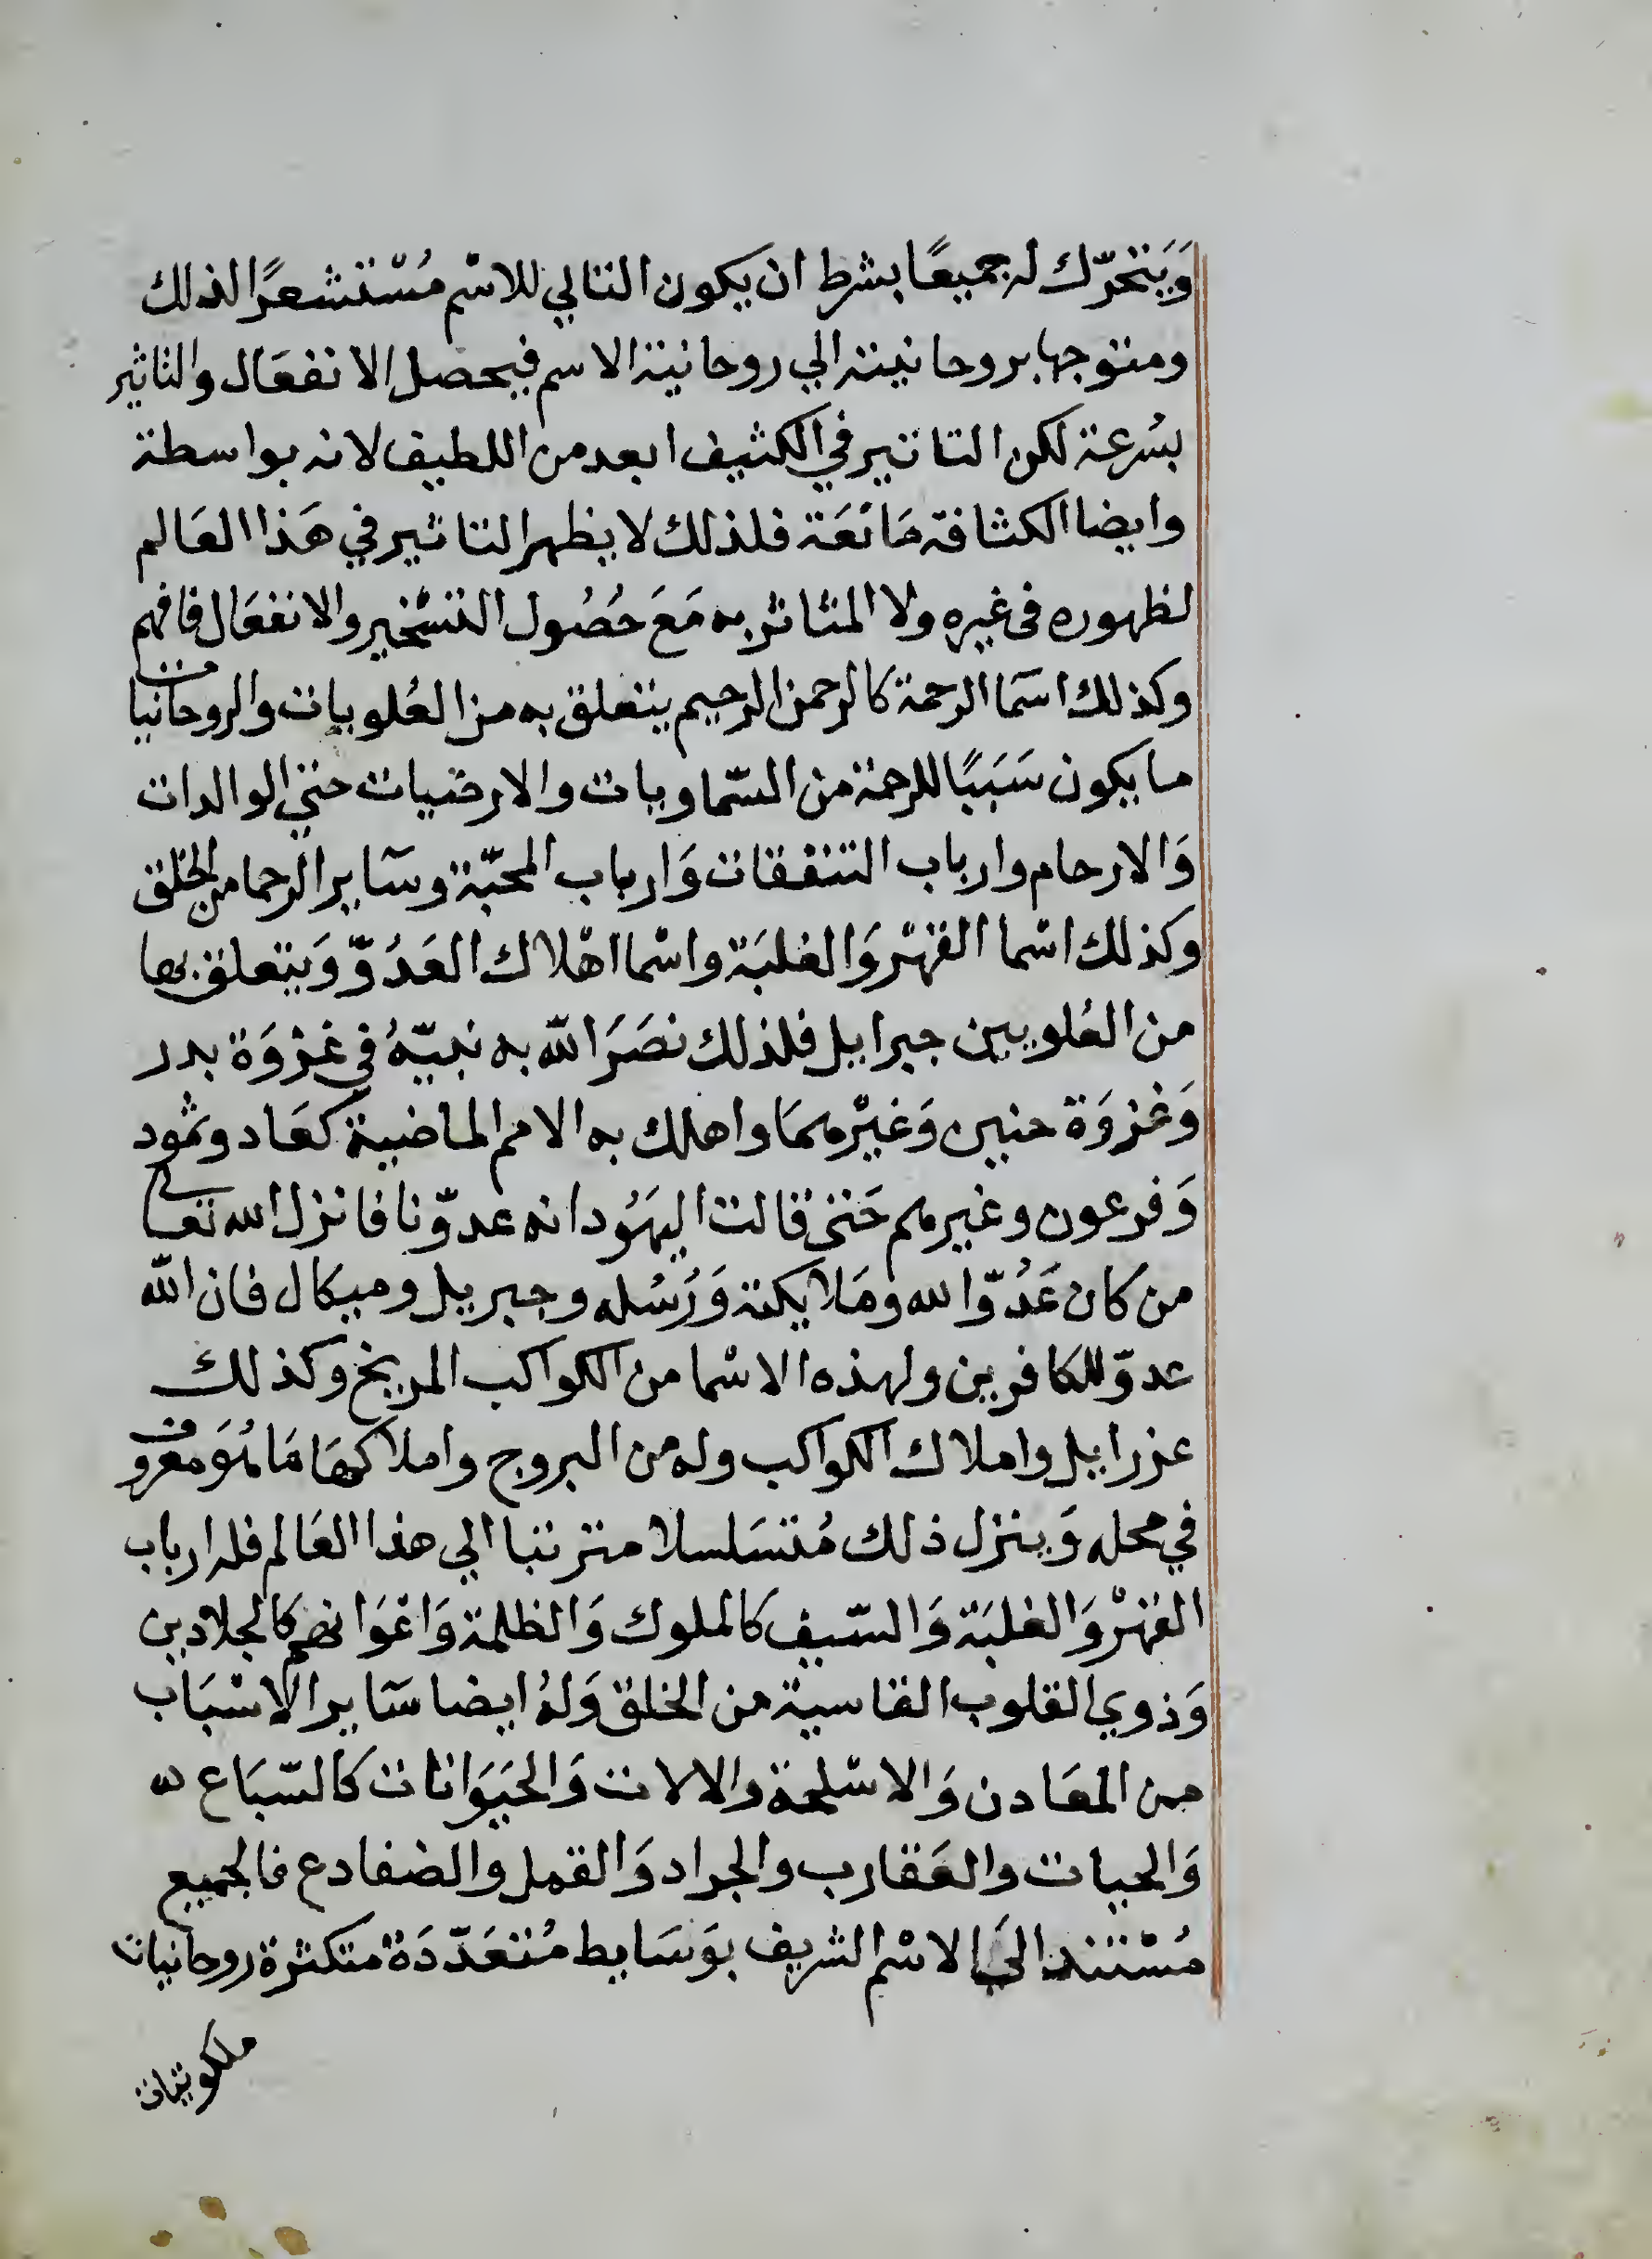 وَيَتحرّك له جميعًا بشرط ان يكون التالي للاسْم مُسْتشعرًا لذلك
ومتوجها بروحانيته الي روحانية الاسم فيحصل الانفعَال والتاثير
بسُرعة لكن التاثير في الكثيف ابعد من اللطيف لانه بواسطة
وايضا الكثافة مَانعَة فلذلك لا يظهر التاثير في هَذا العَالم
لظهوره فى غيره ولا المتاثر به مَعَ حُصُول التسْخير والانفعَال فافهم
وكذلك اسمَا الرحمة كالرحمن الرحيم يتعلق به من العُلويات والروحانيات
ما يكون سَبَبًا للرحمة من السّماويات والارضيات حتي الوالدات
وَالارحام وارباب التنفقات وَارباب المحبّة وسَاير الرحما من الخلق
وكذلك اسْما القهْر وَالغلبَة واسْما اهْلاك العَدُوّ وَيتعلق بها
من العُلويين جبرايل فلذلك نصَرَ الله به نبيّهُ في غزْوَة بدر
وَغزْوَة حنين وَغيْرهمَا واهلك به الامم الماضية كعَاد وثمود
وَفرعون وغيرهم حَتى قالت اليهَود انه عدوّنا فانزل الله تعالى
من كان عَدُوّا لله ومَلايكته وَرُسُله وجبريل وميكال فان الله
عدوّ للكافرين ولهذه الاسْما من الكواكب المريخ وكذلك
عزرايل واملاك الكواكب وله من البروج واملاكهَا مَا هُوَ معروف
في محله وَينزل ذلك مُتسَلسلا مترتبا الي هذا العَالم فله ارباب
القهْر وَالغلبَة وَالسّيف كالملوك وَالظلمة وَاعْوَانهم كالجلادين
وَذوي القلوب القاسية من الخلق وَلهُ ايضا سَاير الاسْبَاب
من المعَادن وَالاسْلحة والالات وَالحيَوَانات كَالسّبَاع
وَالحيات والعَقارب والجراد وَالقمل والضفادع فالجميع
مُسْتند الىَ الاسْم الشريف بوَسَايط مُتعَدّدَة متكثرة روحانيات
ملكوتيات